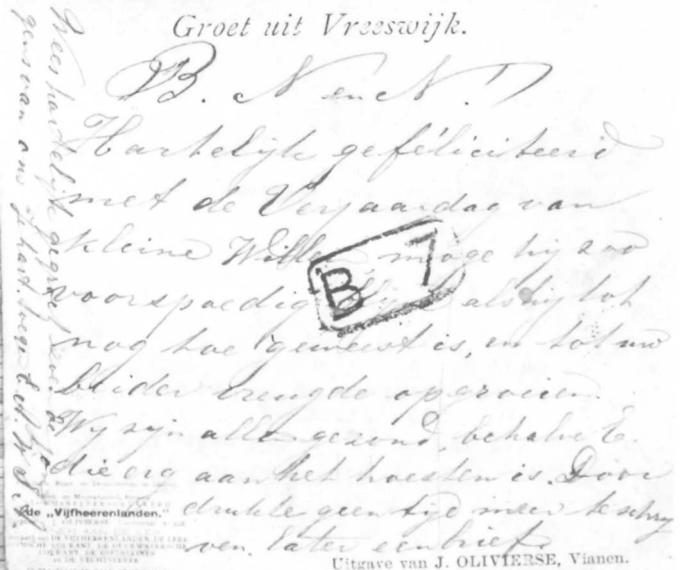 Groet uit Vreeswijk.
B. N en N.
Hartelijk gefeliciteerd
met de Verjaardag van
kleine Willem moge hij zoo
voorspoedig als hij tot
nog toe geweest is, en tot uw
beider vreugde opgroeien.
Wij zijn allen gezond, behalve E.
die erg aan het hoesten is. Door
drukte geen tijd meer te schrij
ven. Later een brief.
B 7
Wees hartelijk gegroet
van ons
de „Vijfheerenlanden."
Uitgave van J. OLIVIERSE, Vianen.